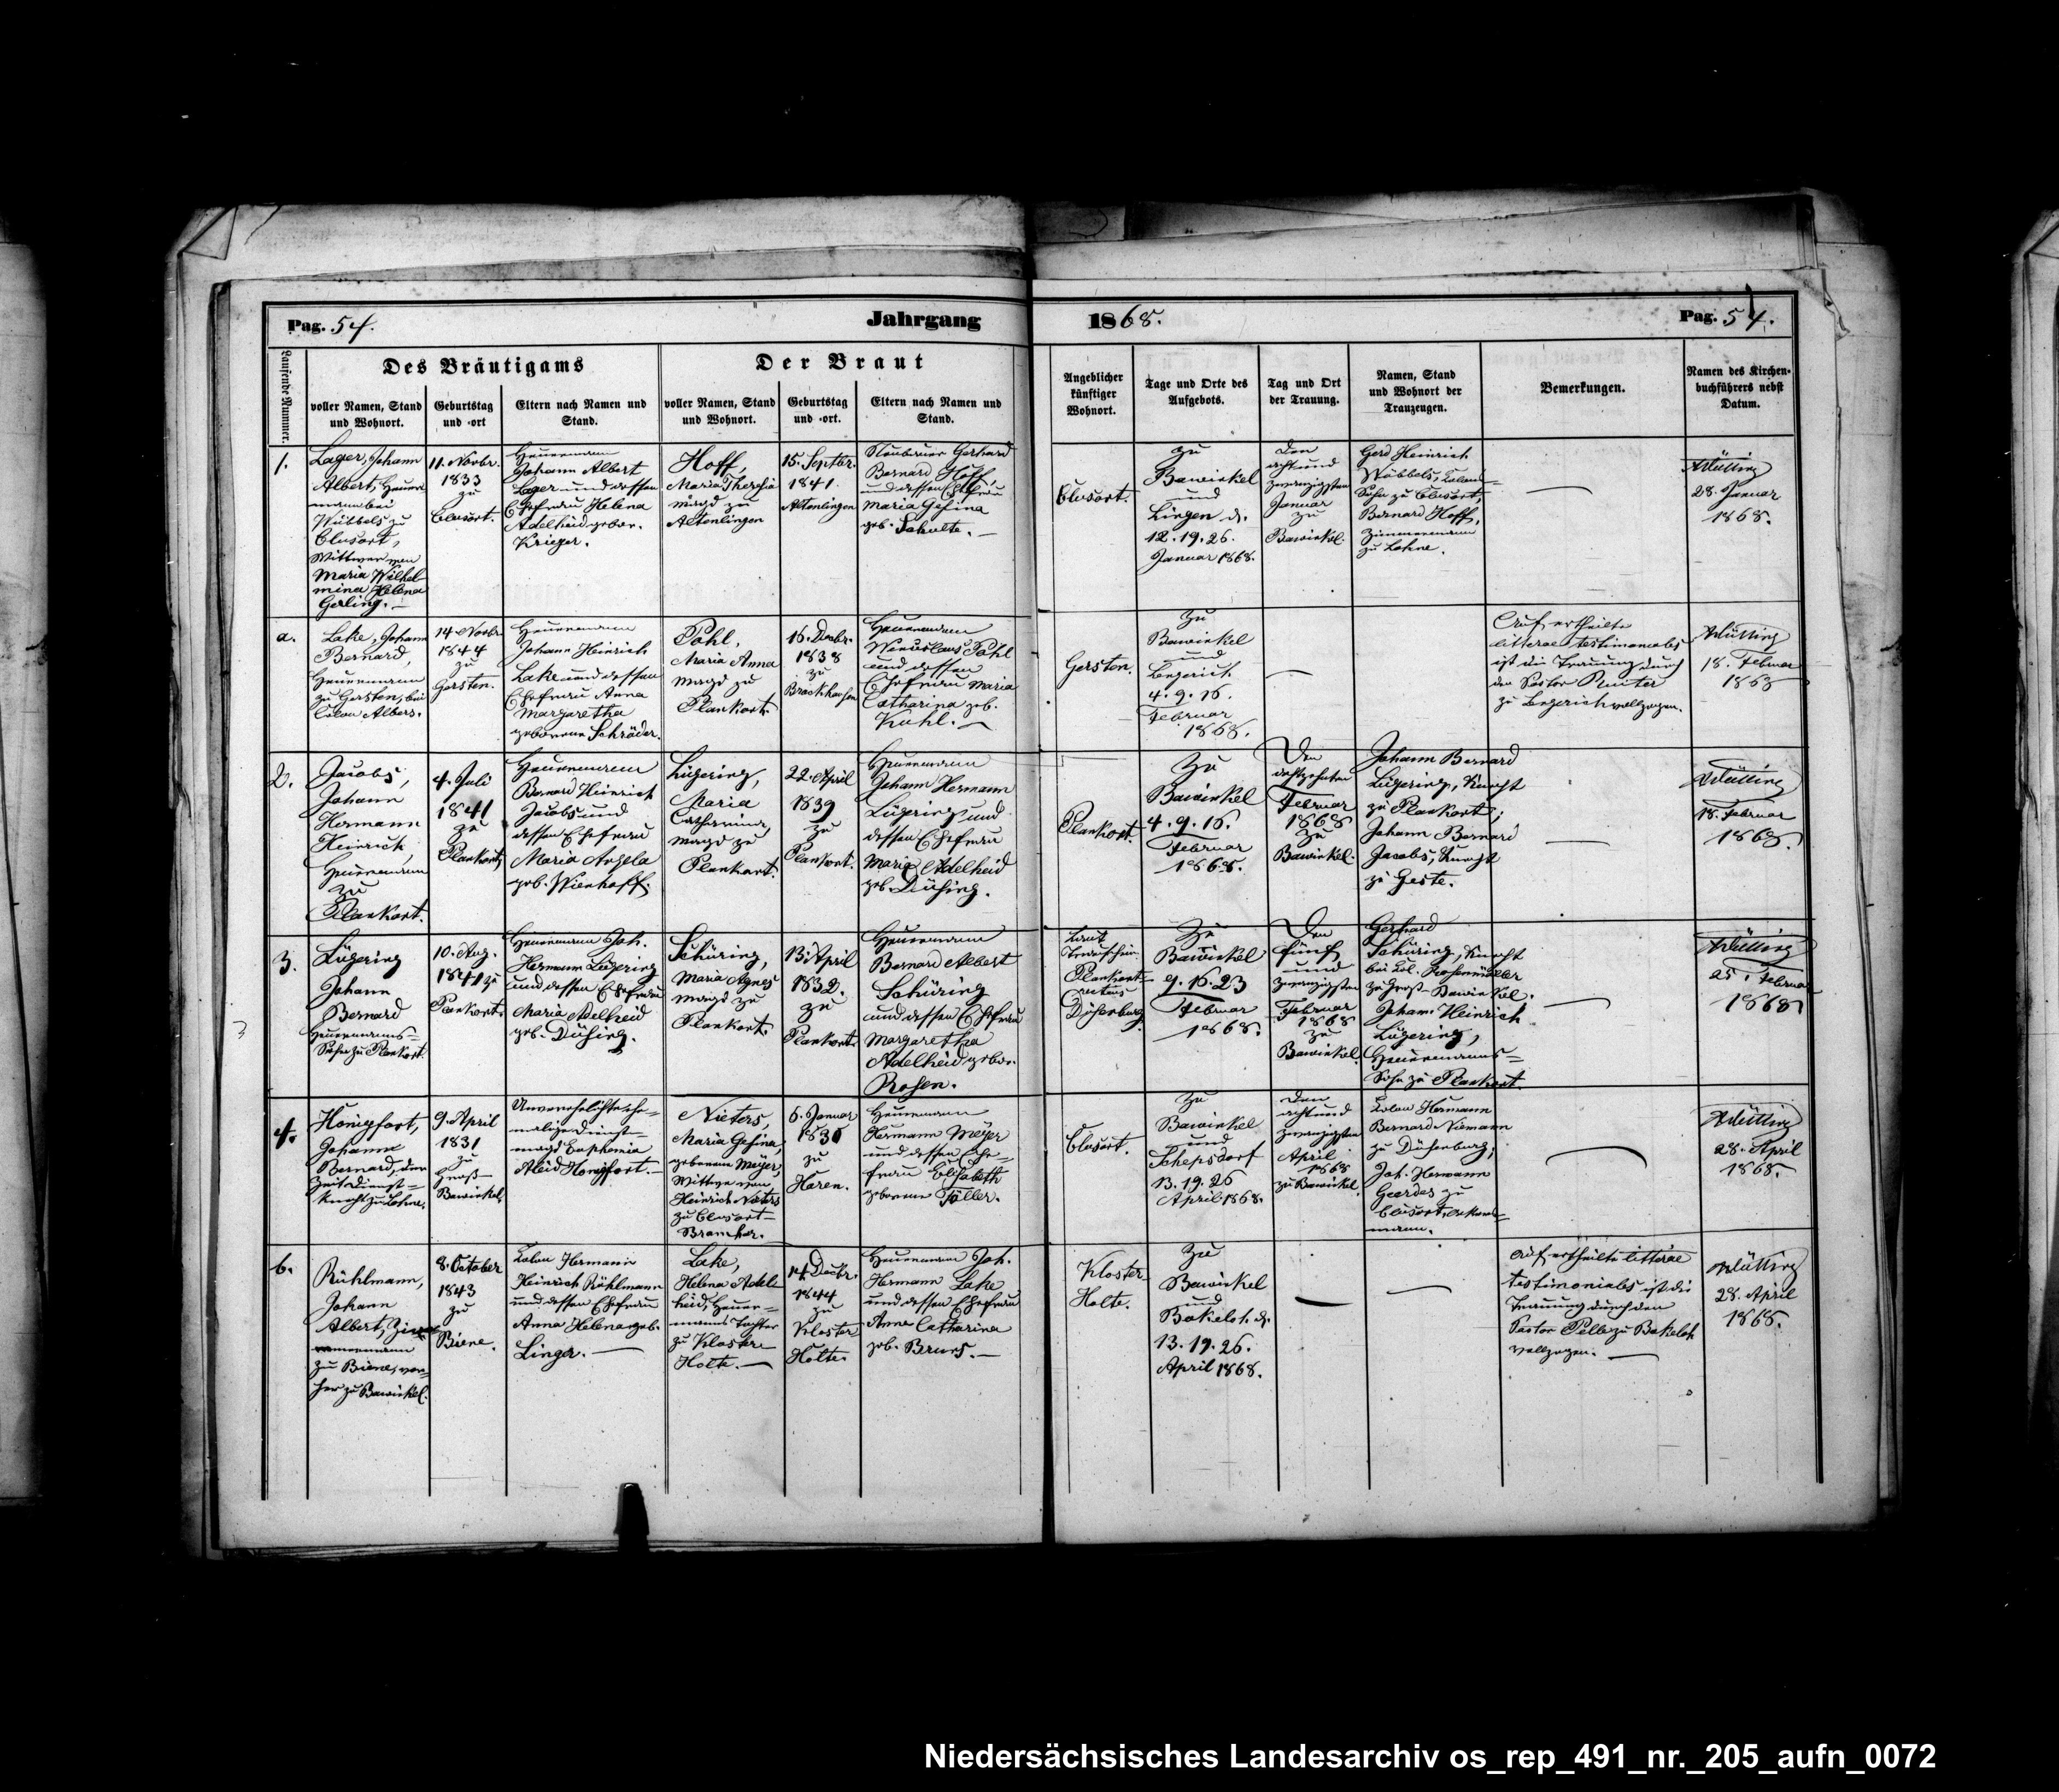 Pag. 54.
Jahrgang
1868.
Pag. 54.
Laufende Nummer.
Des Bräutigams
Der Braut
voller Namen, Stand
und Wohnort.
Geburtstag
und -ort
Eltern nach Namen und
Stand.
voller Namen, Stand
und Wohnort.
Geburtstag
und -ort.
Eltern nach Namen und
Stand.
Angeblicher
künftiger
Wohnort.
Tage und Orte des
Aufgebots.
Tag und Ort
der Trauung.
Namen, Stand
und Wohnort der
Trauzeugen.
Bemerkungen.
Namen des Kirchen-
buchführers nebst
Datum.
1.
Lager, Johann
Albert, Heuer
mann bei
Wübbels zu
Clusort,
Wittwer von
Maria Wilhel
mina Helena
Gerling. —
11. Novbr.
1833
zu
Clusort.
Heuermann
Johann Albert
Lager und dessen
Ehefrau Helena
Adelheid gebor.
Krieger.
Hoff,
Maria Theresia
Magd zu
Altenlingen
15. Septbr.
1841.
Altenlingen
Neubauer Gerhard
Bernard Hoff
und dessen Ehefrau
Maria Gesina
geb. Schulte. —
Clusort.
zu
Bawinkel
und
Lingen d.
12. 19. 26.
Januar 1868.
Den
acht und
zwanzigsten
Januar
zu
Bawinkel.
Gerd Heinrich
Wübbels, Colons-
Sohn zu Clusort,
Bernard Hoff,
Zimmermann
zu Lohne.
—
28. Januar
1868.
a.
Lake, Johann
Bernard,
Heuermann
zu Gersten, bei
Colon Albers.
14. Novbr
1844
zu
Gersten.
Heuermann
Johann Heinrich
Lake und dessen
Ehefrau Anna
Margaretha
geborene Schröder.
Pohl,
Maria Anna
Magd zu
Plankort.
16. Decbr.
1838
zu
Brockhausen
Heuermann
Wenceslaus Pohl
und dessen
Ehefrau Maria
Catharina geb.
Kuhl. —
Gersten.
zu
Bawinkel
und
Lengerich
4. 9. 16.
Februar
1868.
—
Auf ertheilte
litterae testimoniales
ist die Trauung durch
den Pastor Reuter
zu Lengerich vollzogen.
18. Februar
1868
2.
Jacobs,
Johann
Hermann
Heinrich,
Heuermann
zu
Plankort.
4. Juli
1841
zu
Plankort
Heuermann
Bernard Heinrich
Jacobs und
dessen Ehefrau
Maria Angela
geb. Wienhoff.
Lügering,
Maria
Catharina,
Magd zu
Plankort.
22. April
1839
zu
Plankort.
Heuermann
Johann Hermann
Lügering und
dessen Ehefrau
Maria Adelheid
geb. Dühing.
Plankort.
Zu
Bawinkel
4. 9. 16.
Februar
1868.
Den
achtzehnten
Februar
1868
zu
Bawinkel.
Johann Bernard
Lügering, Knecht
zu Plankort;
Johann Bernard
Jacobs, Knecht
zu Geste.
—
18. Februar
1868.
3.
Lügering
Johann
Bernard
Heuermanns-
Sohn zu Plankort.
10. Aug.
1841 zu
Plankort.
Heuermann Joh.
Hermann Lügering
und dessen Ehefrau
Maria Adelheid
geb. Dühing.
Schüring,
Maria Agnes
Magd zu
Plankort.
13. April
1832.
zu
Plankort.
Heuermann
Bernard Albert
Schüring
und dessen Ehefrau
Margaretha
Adelheid gebor.
Rosen.
Laut
Trauschein
Plankort-
rectius
Düsenburg.
Zu
Bawinkel
9. 16. 23
Februar
1868.
Den
fünf
und
zwanzigsten
Februar
1868
zu
Bawinkel.
Gerhard
Schüring, Knecht
bei Col.
zu Groß-Bawinkel.
Johann Heinrich
Lügering,
Heuermanns-
Sohn zu Plankort.
—
25. Februar
1868
4.
Königfort,
Johann
Bernard, der
Zeit Dienst-
knecht zu Lohne.
9. April
1831
zu
Groß-
Bawinkel,
Unverehelichte ehe-
malige Dienst-
magd Euphemia
Aleid Königfort. —
Nieters,
Maria Gesina,
geborene Meÿer,
Wittwe von
Heinrich Nieters
zu Clusort-
Bramhar.
6. Januar
zu
Haren.
Heuermann
Hermann Meÿer
und dessen Ehe-
frau Elisabeth
geborene Töller.
Clusort.
Zu
Bawinkel
und
Schepsdorf
13. 19. 26
April 1868.
Den
acht und
zwanzigsten
April
1868
zu Bawinkel.
Colon Hermann
Bernard Niemann
zu Düsenburg;
Joh. Hermann
Geerdes zu
Clusort, Acker-
mann.
—
28. April
1868.
b.
Rühlmann,
Johann
Albert, Zim
mermann
zu Biene, vor-
her zu Bawinkel.
8. October
1843
zu
Biene.
Colon Hermann
Heinrich Rühlmann
und dessen Ehefrau
Anna Helena geb.
Linger. —
Lake,
Helena Adel
heid, Heuer-
manns Tochter
zu Kloster-
Holte. —
14. Decbr.
1844
zu
Kloster
Holte.
Heuermann Joh.
Hermann Lake
und dessen Ehefrau
Anna Catharina
geb. Bruns. —
Kloster
Holte.
Zu
Bawinkel
und
Bokeloh d.
13. 19. 26.
April 1868.
—
—
Auf ertheilte litterae
testimoniales ist die
Trauung durch den
Pastor zu Bokeloh
vollzogen. —
28. April
1868.
Niedersächsisches Landesarchiv os_rep_491_nr._205_aufn_0072